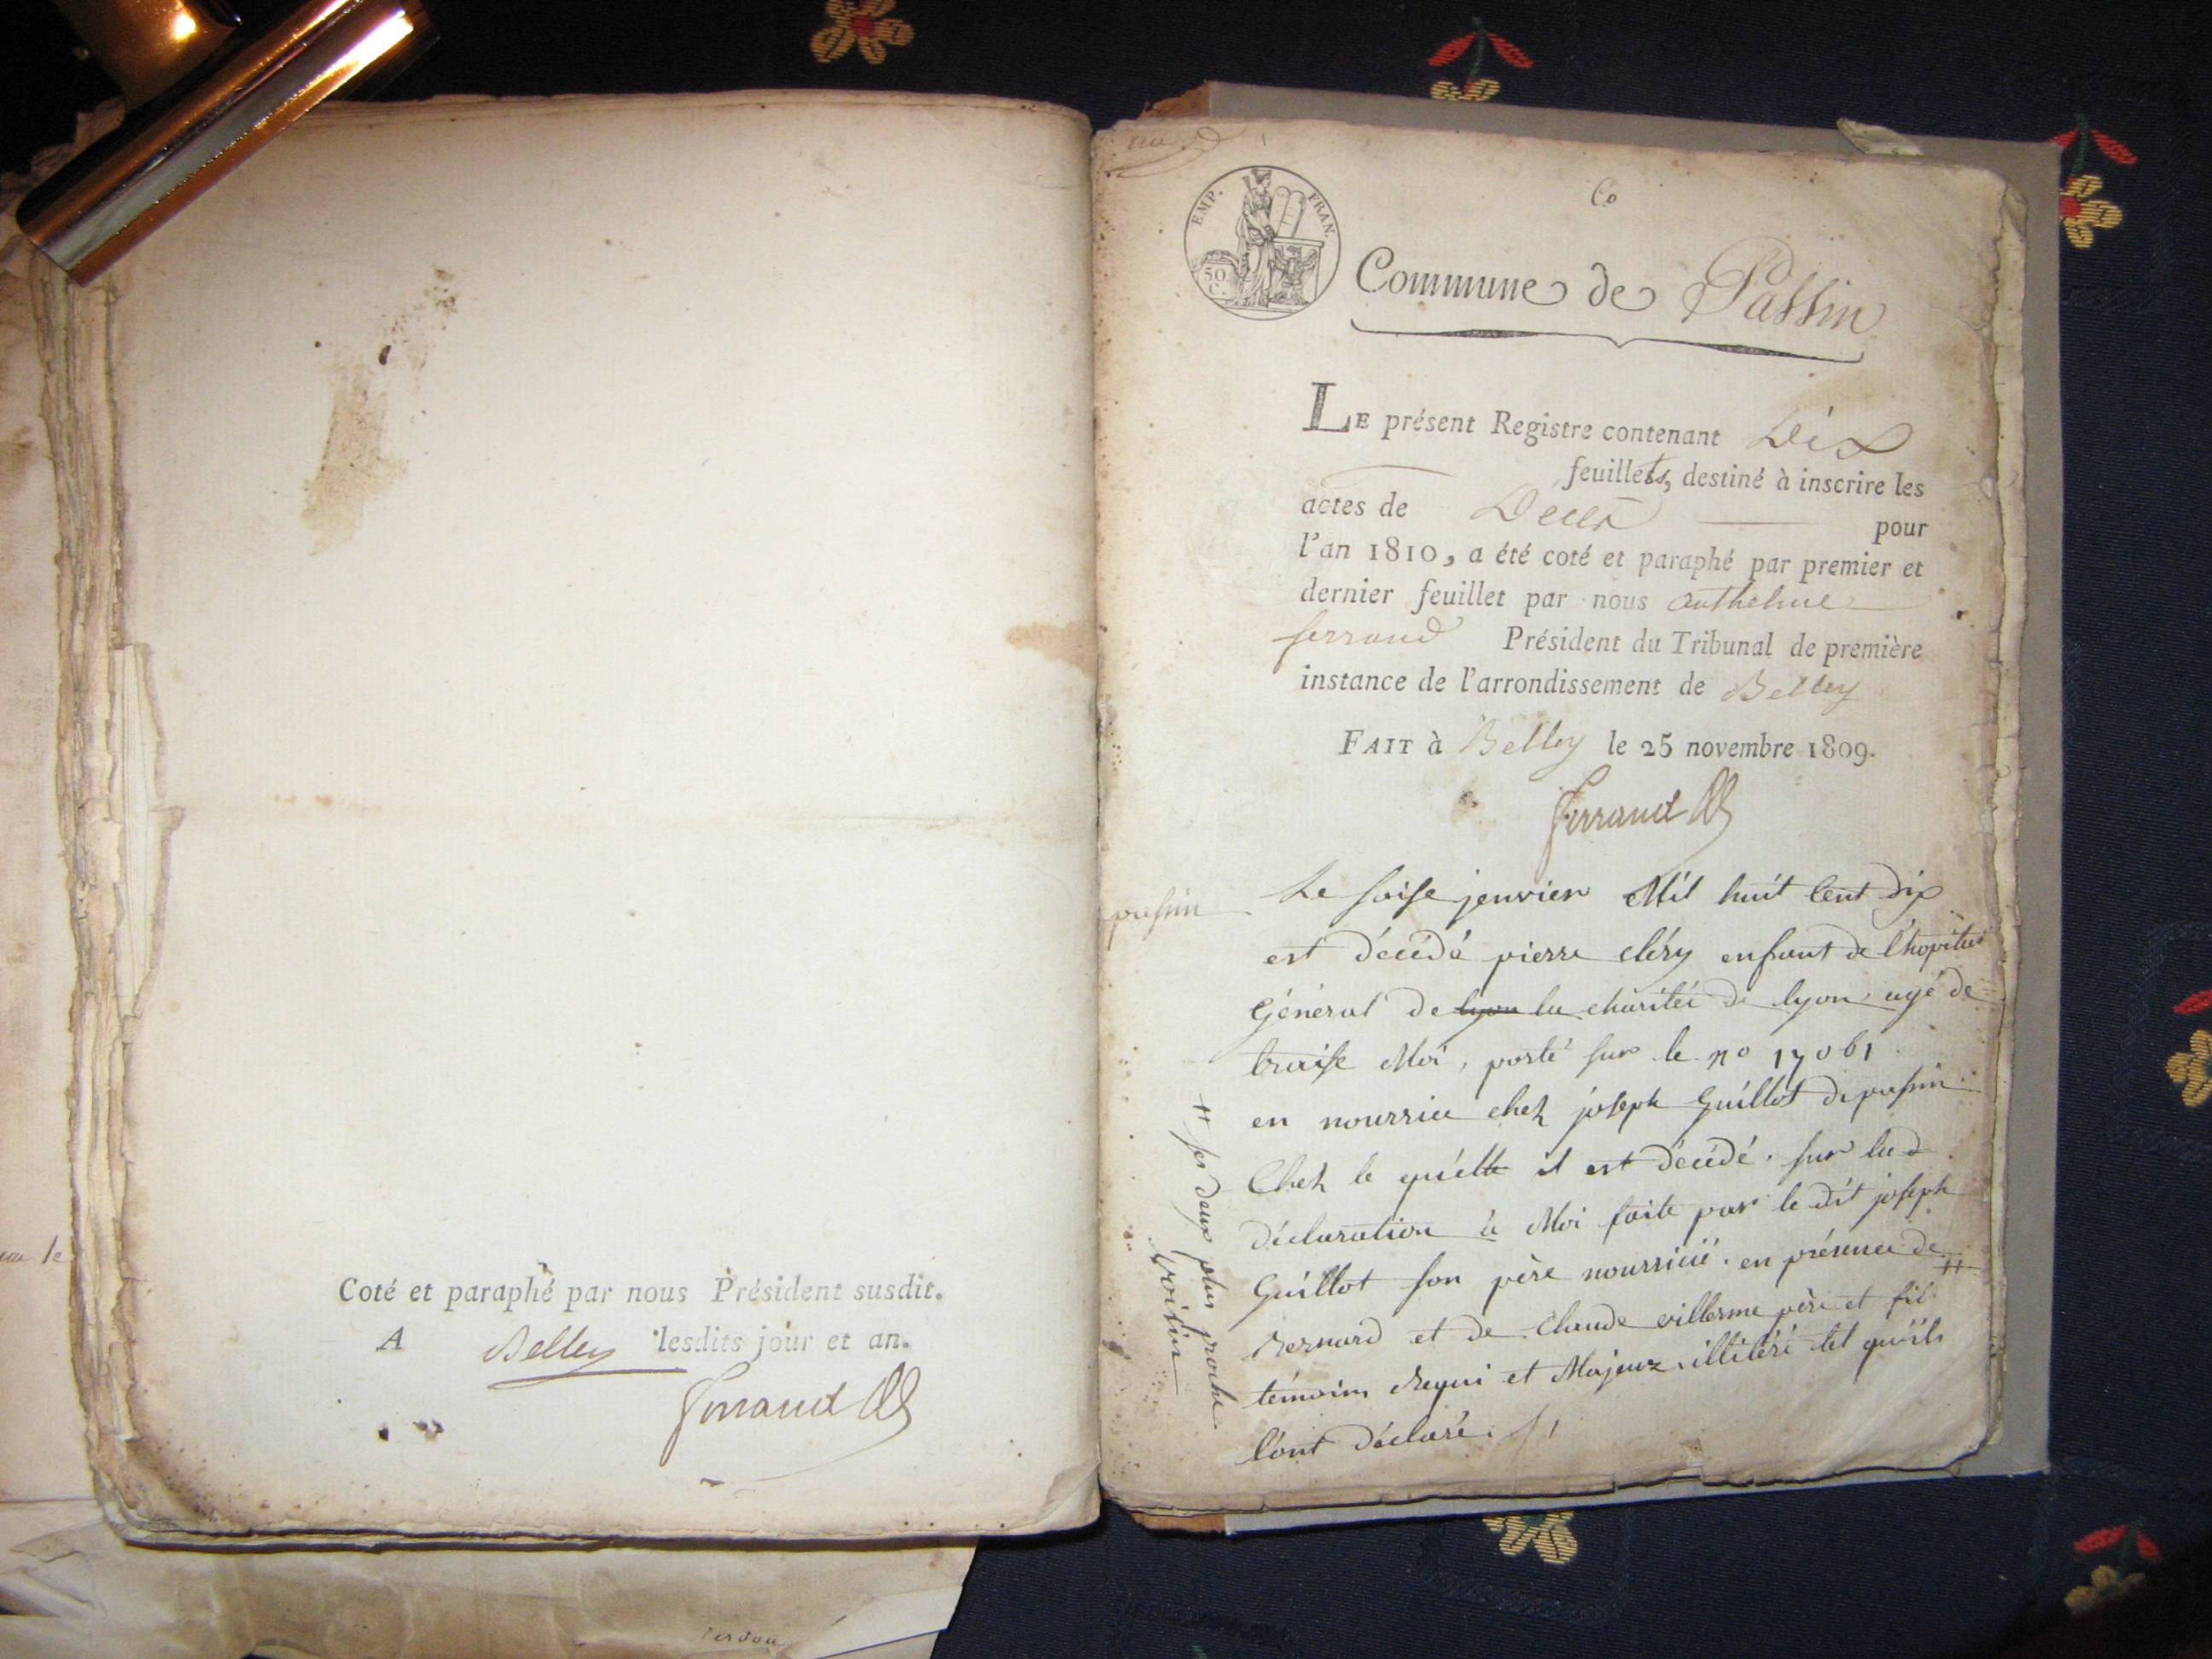 Coté et paraphé par nous Président susdit.
A Belley lesdits jour et an.
ferrand
EMP. FRAN.
50 C.
Commune de Passin
LE présent Registre contenant Dix
feuillets, destiné à inscrire les
actes de Décès pour
l'an 1810, a été coté et paraphé par premier et
dernier feuillet par nous anthelme
ferrand Président du Tribunal de première
instance de l'arrondissement de Belley
FAIT à Belley le 25 novembre 1809.
ferrand
passin
Le saise jenvier Mil huit Cent dix
est décédé pierre cléry enfant de l'hopital
Général de lyon la charitéé de lyon, agé de
traise Moi, porté sur le no 17061
en nourrice chez joseph Guillot de passin
Chez le quielle il est décédé. sur la d
déclaration à Moi faite par le dit joseph
Guillot son père nourricié. en présence de #
Bernard et de Claude villerme père et fil
témoins Requi et Majeur illitéré tel qu'ils
l'ont déclaré.
# ses deux plus proche
voisin